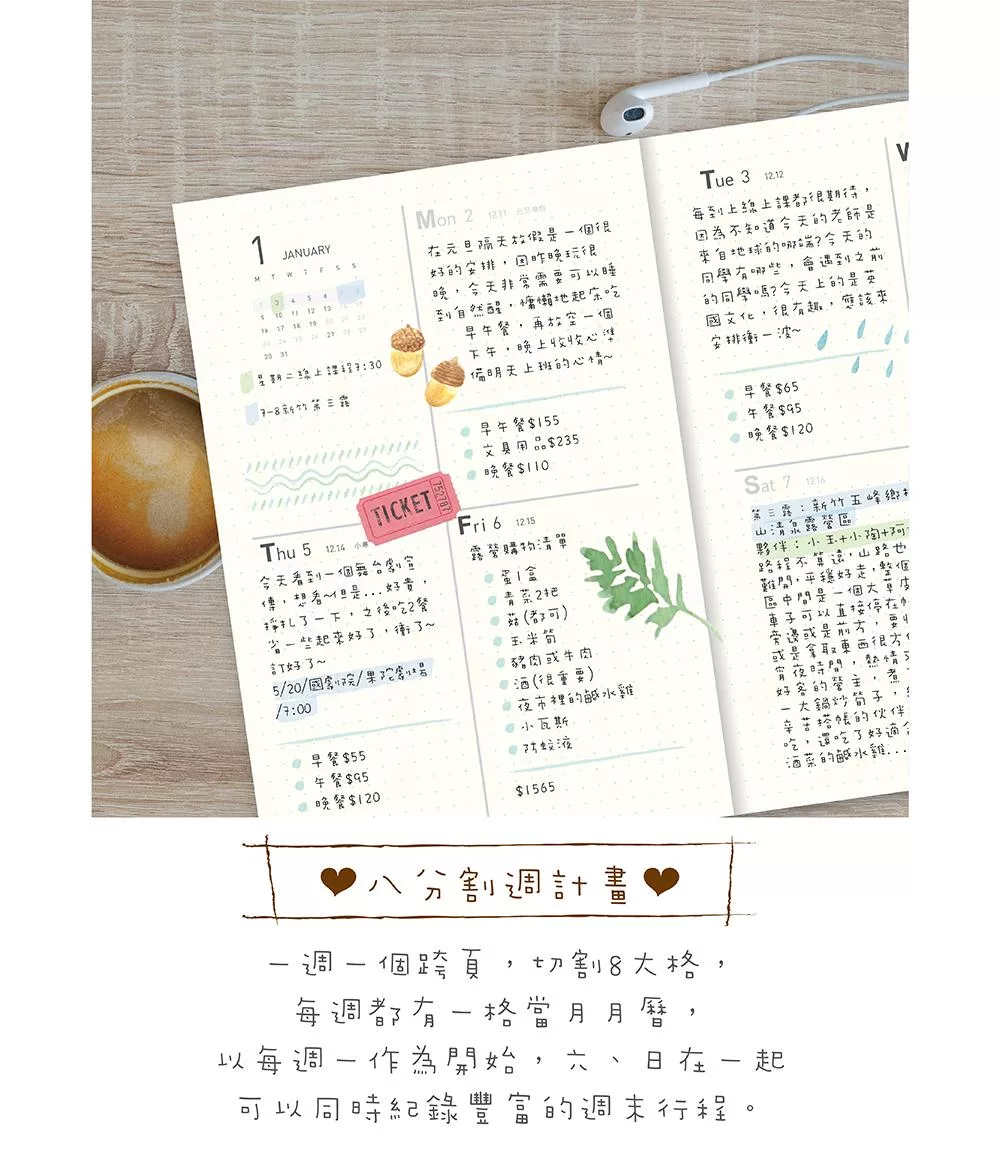 1 JANUARY
M T W T F S S
2 3 4 5 6 7 8
9 10 11 12 13 14 15
16 17 18 19 20 21 22
23 24 25 26 27 28 29
30 31
星期二線上課程7:30
7-8新竹第三露
TICKET
752787
Mon 2 12.11 元旦補假
在元旦隔天放假是一個很
好的安排，因昨晚玩很
晚，今天非常需要可以睡
到自然醒，慵懶地起床吃
早午餐，再放空一個
下午，晚上收收心準
備明天上班的心情~
早午餐$155
文具用品$235
晚餐$110
Tue 3 12.12
每到上線上課都很期待，
因為不知道今天的老師是
來自地球的哪端?今天的
同學有哪些，會遇到之前
的同學嗎?今天上的是英
國文化，很有趣，應該來
安排衝一波~
早餐$65
午餐$95
晚餐$120
W
Thu 5 12.14 小寒
今天看到一個舞台劇宣
傳，想看~但是...好貴，
掙扎了一下，之後吃2餐
省一些起來好了，衝了~
訂好了~
5/20/國劇院/果陀劇場
/7:00
早餐$55
午餐$95
晚餐$120
Fri 6 12.15
露營購物清單
蛋1盒
青菜2把
菇(都可)
玉米筍
豬肉或牛肉
酒(很重要)
夜市裡的鹹水雞
小瓦斯
防蚊液
$1565
Sat 7 12.16
第三露：新竹五峰鄉
山清泉露營區
夥伴：小玉+小陶+阿
路程不算遠，山路也
難開，平穩好走，整個
區中間是一個大草皮
車子可以直接停在帳
旁邊或是前方，要
或是拿取東西很方
宵夜時間，熱情
好客的營主，煮
一大鍋炒筍子，
辛苦搭帳的伙伴
吃，還吃了好適合
酒菜的鹹水雞...
八分割週計畫
一週一個跨頁，切割8大格，
每週都有一格當月月曆，
以每週一作為開始，六、日在一起
可以同時紀錄豐富的週末行程。